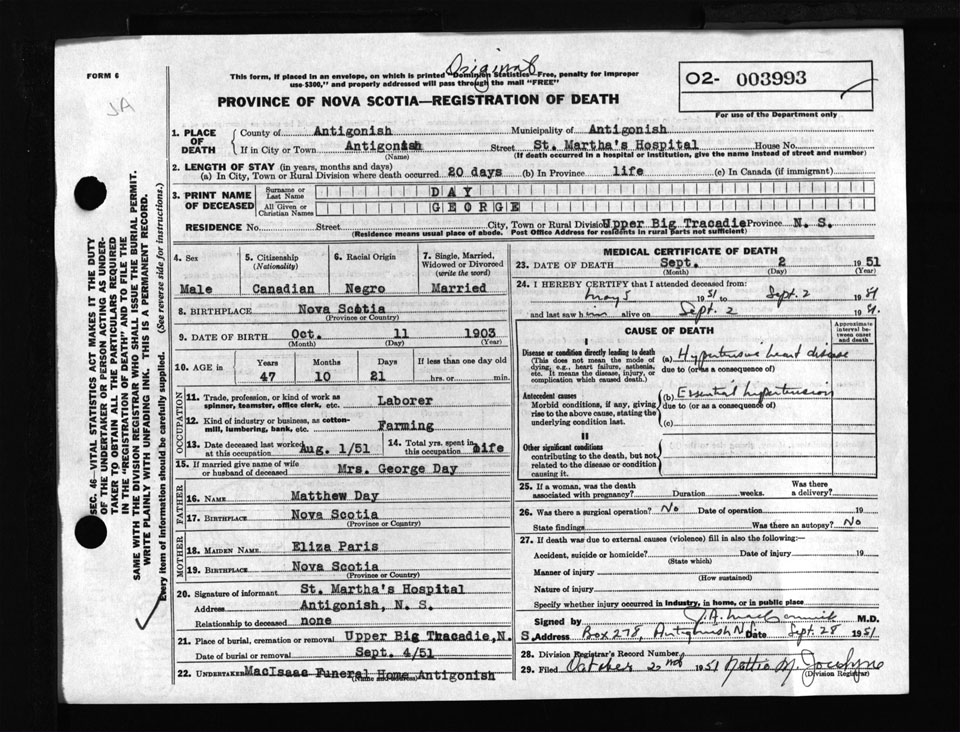 FORM 6
JA
Original
This form, if placed in an envelope, on which is printed "Dominion Statistics—Free, penalty for improper
use $300," and properly addressed will pass through the mail "FREE"
PROVINCE OF NOVA SCOTIA—REGISTRATION OF DEATH
02- 003993
For use of the Department only
1. PLACE OF DEATH
County of Antigonish Municipality of Antigonish
If in City or Town Antigonish Street St. Martha's Hospital House No.
(Name) (If death occurred in a hospital or institution, give the name instead of street and number)
2. LENGTH OF STAY (in years, months and days)
(a) In City, Town or Rural Division where death occurred 20 days (b) In Province life (c) In Canada (if immigrant)
3. PRINT NAME OF DECEASED
Surname or Last Name DAY
All Given or Christian Names GEORGE
RESIDENCE No. Street City, Town or Rural Division Upper Big Tracadie Province N. S.
(Residence means usual place of abode. Post Office Address for residents in rural parts not sufficient)
4. Sex
Male
5. Citizenship (Nationality)
Canadian
6. Racial Origin
Negro
7. Single, Married, Widowed or Divorced (write the word)
Married
8. BIRTHPLACE Nova Scotia
(Province or Country)
9. DATE OF BIRTH Oct. 11 1903
(Month) (Day) (Year)
10. AGE in Years Months Days If less than one day old
47 10 21 hrs. or min.
OCCUPATION
11. Trade, profession, or kind of work as
spinner, teamster, office clerk, etc. Laborer
12. Kind of industry or business, as cotton-
mill, lumbering, bank, etc. Farming
13. Date deceased last worked
at this occupation Aug. 1/51
14. Total yrs. spent in
this occupation life
15. If married give name of wife
or husband of deceased Mrs. George Day
FATHER
16. NAME Matthew Day
17. BIRTHPLACE Nova Scotia
(Province or Country)
MOTHER
18. MAIDEN NAME Eliza Paris
19. BIRTHPLACE Nova Scotia
(Province or Country)
20. Signature of informant St. Martha's Hospital
Address Antigonish, N. S.
Relationship to deceased none
21. Place of burial, cremation or removal Upper Big Tracadie, N. S.
Date of burial or removal Sept. 4/51
22. UNDERTAKER MacIsaac Funeral Home Antigonish
(Name and address)
MEDICAL CERTIFICATE OF DEATH
23. DATE OF DEATH Sept. 2 1951
(Month) (Day) (Year)
24. I HEREBY CERTIFY that I attended deceased from:
May 5 1951 to Sept. 2 1951
and last saw him alive on Sept. 2 1951.
CAUSE OF DEATH
Approximate interval between onset and death
I
Disease or condition directly leading to death
(This does not mean the mode of
dying, e.g., heart failure, asthenia,
etc. It means the disease, injury, or
complication which caused death.)
(a) Hypertensive heart disease
due to (or as a consequence of)
Antecedent causes
Morbid conditions, if any, giving
rise to the above cause, stating the
underlying condition last.
(b) Essential hypertension
due to (or as a consequence of)
(c)
II
Other significant conditions
contributing to the death, but not
related to the disease or condition
causing it.
25. If a woman, was the death
associated with pregnancy? Duration weeks. Was there
a delivery?
26. Was there a surgical operation? No Date of operation 19
State findings Was there an autopsy? No
27. If death was due to external causes (violence) fill in also the following:—
Accident, suicide or homicide? Date of injury 19
(State which)
Manner of injury
(How sustained)
Nature of injury
Specify whether injury occurred in industry, in home, or in public place
Signed by J. A. MacCormick M.D.
Address Box 278, Antigonish NS Date Sept. 28 1951
28. Division Registrar's Record Number
29. Filed October 2nd 1951 Nottie M. Jocelyne
(Division Registrar)
SEC. 46—VITAL STATISTICS ACT MAKES IT THE DUTY
OF THE UNDERTAKER OR PERSON ACTING AS UNDER-
TAKER TO OBTAIN ALL THE PARTICULARS REQUIRED
IN THE "REGISTRATION OF DEATH" AND TO FILE THE
SAME WITH THE DIVISION REGISTRAR WHO SHALL ISSUE THE BURIAL PERMIT.
WRITE PLAINLY WITH UNFADING INK. THIS IS A PERMANENT RECORD.
Every item of information should be carefully supplied. (See reverse side for instructions.)